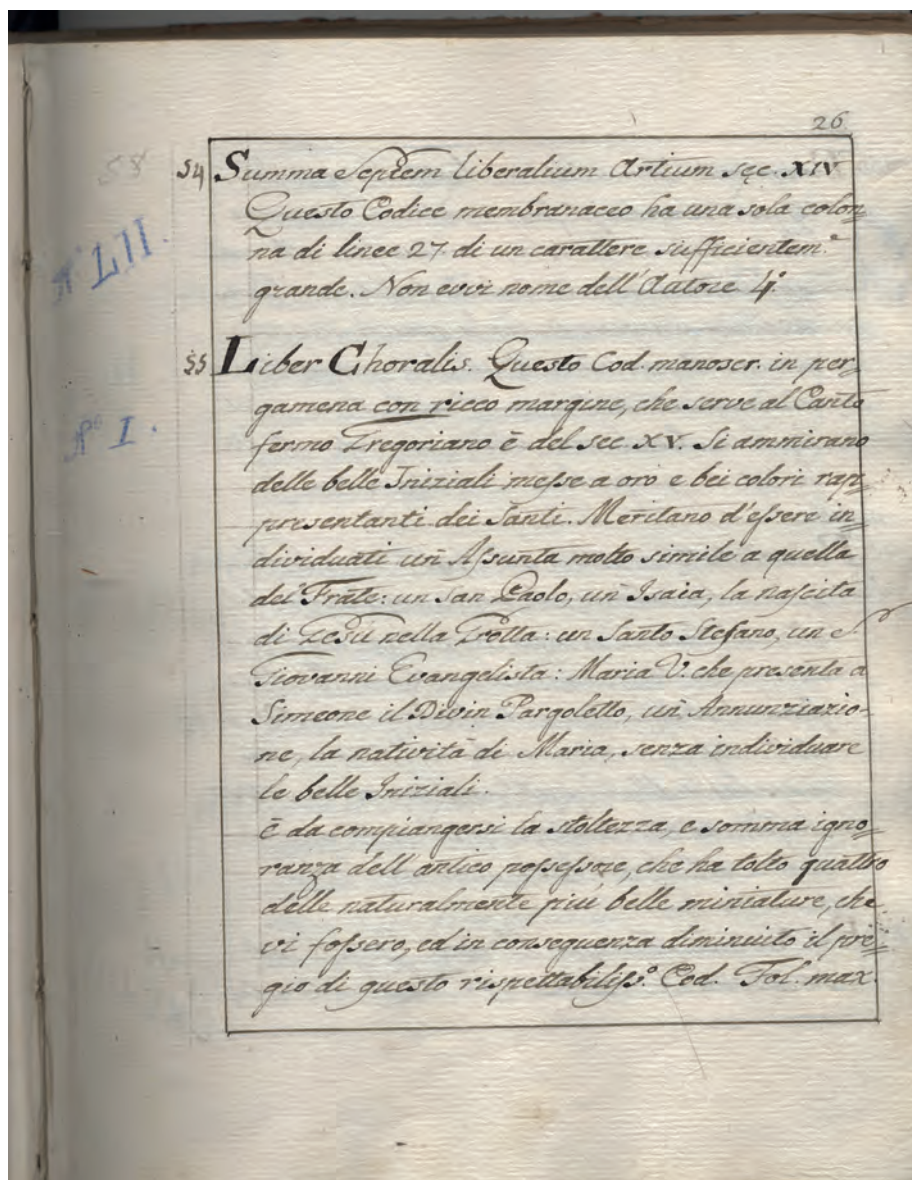 26.
58
54 Summa Septem liberalium Artium sec. XIV
Questo Codice membranaceo ha una sola colon=
na di linee 27 di un carattere sufficientem.e
grande. Non evvi nome dell'Autore 4.°
N° LII.
55 Liber Choralis. Questo Cod. manoscr. in per=
gamena con ricco margine, che serve al Canto
fermo Gregoriano è del sec XV. Si ammirano
N° I.
delle belle Iniziali messe a oro e bei colori rap=
presentanti dei Santi. Meritano d'essere in=
dividuati un Assunta molto simile a quella
del Frate: un San Paolo, un Isaia, la nascita
di Gesù nella Grotta: un Santo Stefano, un S
Giovanni Evangelista: Maria V. che presenta a
Simeone il Divin Pargoletto, un Annunziazio=
ne, la natività di Maria, senza individuare
le belle Iniziali.
è da compiangersi la stoltezza, e somma igno=
ranza dell'antico possessore, che ha tolto quattro
delle naturalmente più belle miniature, che
vi fossero, ed in conseguenza diminuito il pre=
gio di questo rispettabiliss.° Cod. Fol. max.